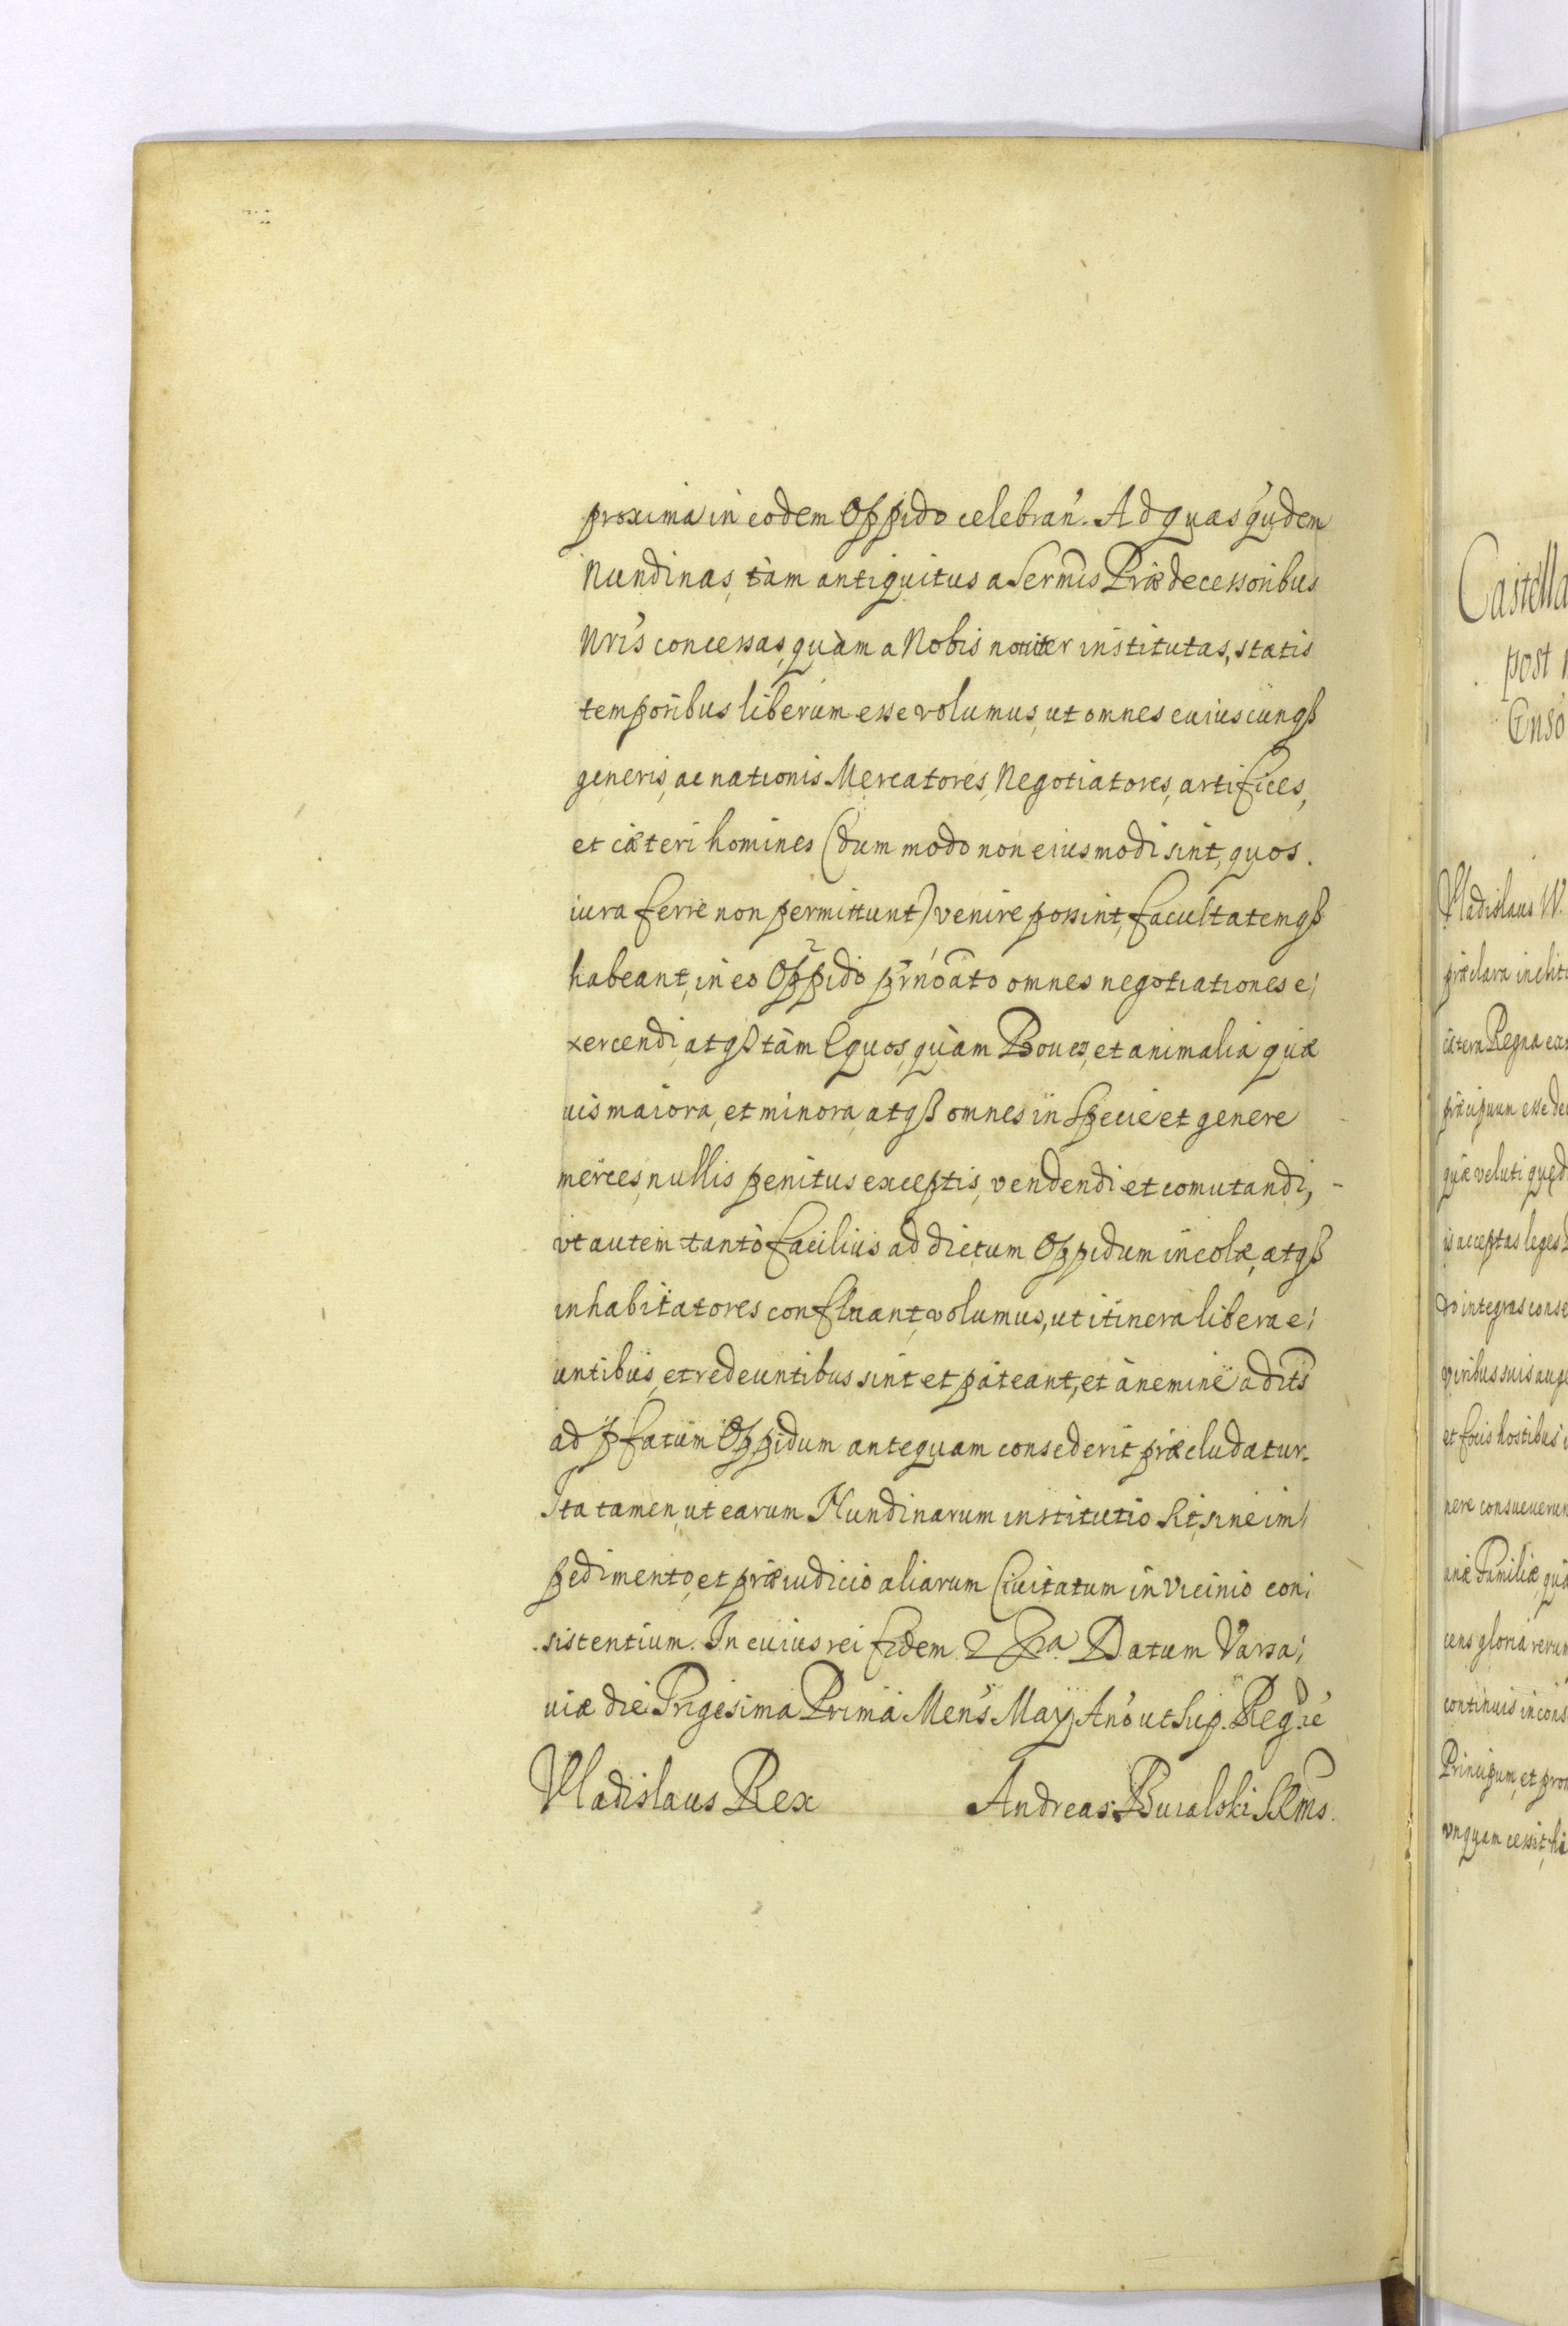 proxima in eodem Oppido celebran'. Ad quas quidem
Nundinas, tàm antiquitus a Sermis Prædecessoribus
Nris concessas, quàm a Nobis nouiter institutas, statis
temporibus liberum esse volumus, ut omnes cuiuscunqß
generis, ac nationis Mercatores, Negotiatores, artifices,
et cæteri homines (dum modo non eiusmodi sint, quos
iura ferre non permittunt) venire possint, facultatemqß
habeant, in eo Oppido prnoato omnes negotiationes e¦
xercendi, atqß tàm Equos, quàm Boues, et animalia quæ
uis maiora, et minora, atqß omnes in Specie et genere
merces, nullis penitus exceptis, vendendi et comutandi,
vt autem tantò facilius ad dictum Oppidum incolæ, atqß
inhabitatores confluant, volumus, ut itinera libera e¦
untibus, et redeuntibus sint et pateant, et à nemine adits
ad pfatum Oppidum antequam consederit præcludatur.
Ita tamen, ut earum Nundinarum institutio sit, sine im¦
pedimento, et præiudicio aliarum Ciuitatum in vicinio con¦
sistentium. In cuius rei fidem Datum Varsa¦
uiæ die Trigesima Prima Mens May Ano ut sup.
Vladislaus Rex Andreas
Castella
post
Enso
Vladislaus W.
præclara inclit
cætera Regna
præcipuum esse de
quæ veluti quæd
is acceptas leges
do integras conse
viribus suis
et focis hostibus
nere consueuerun
anæ Familiæ, qua
cens gloria rerum
continuis incons
Principum, et pro
vnquam cessit, hi